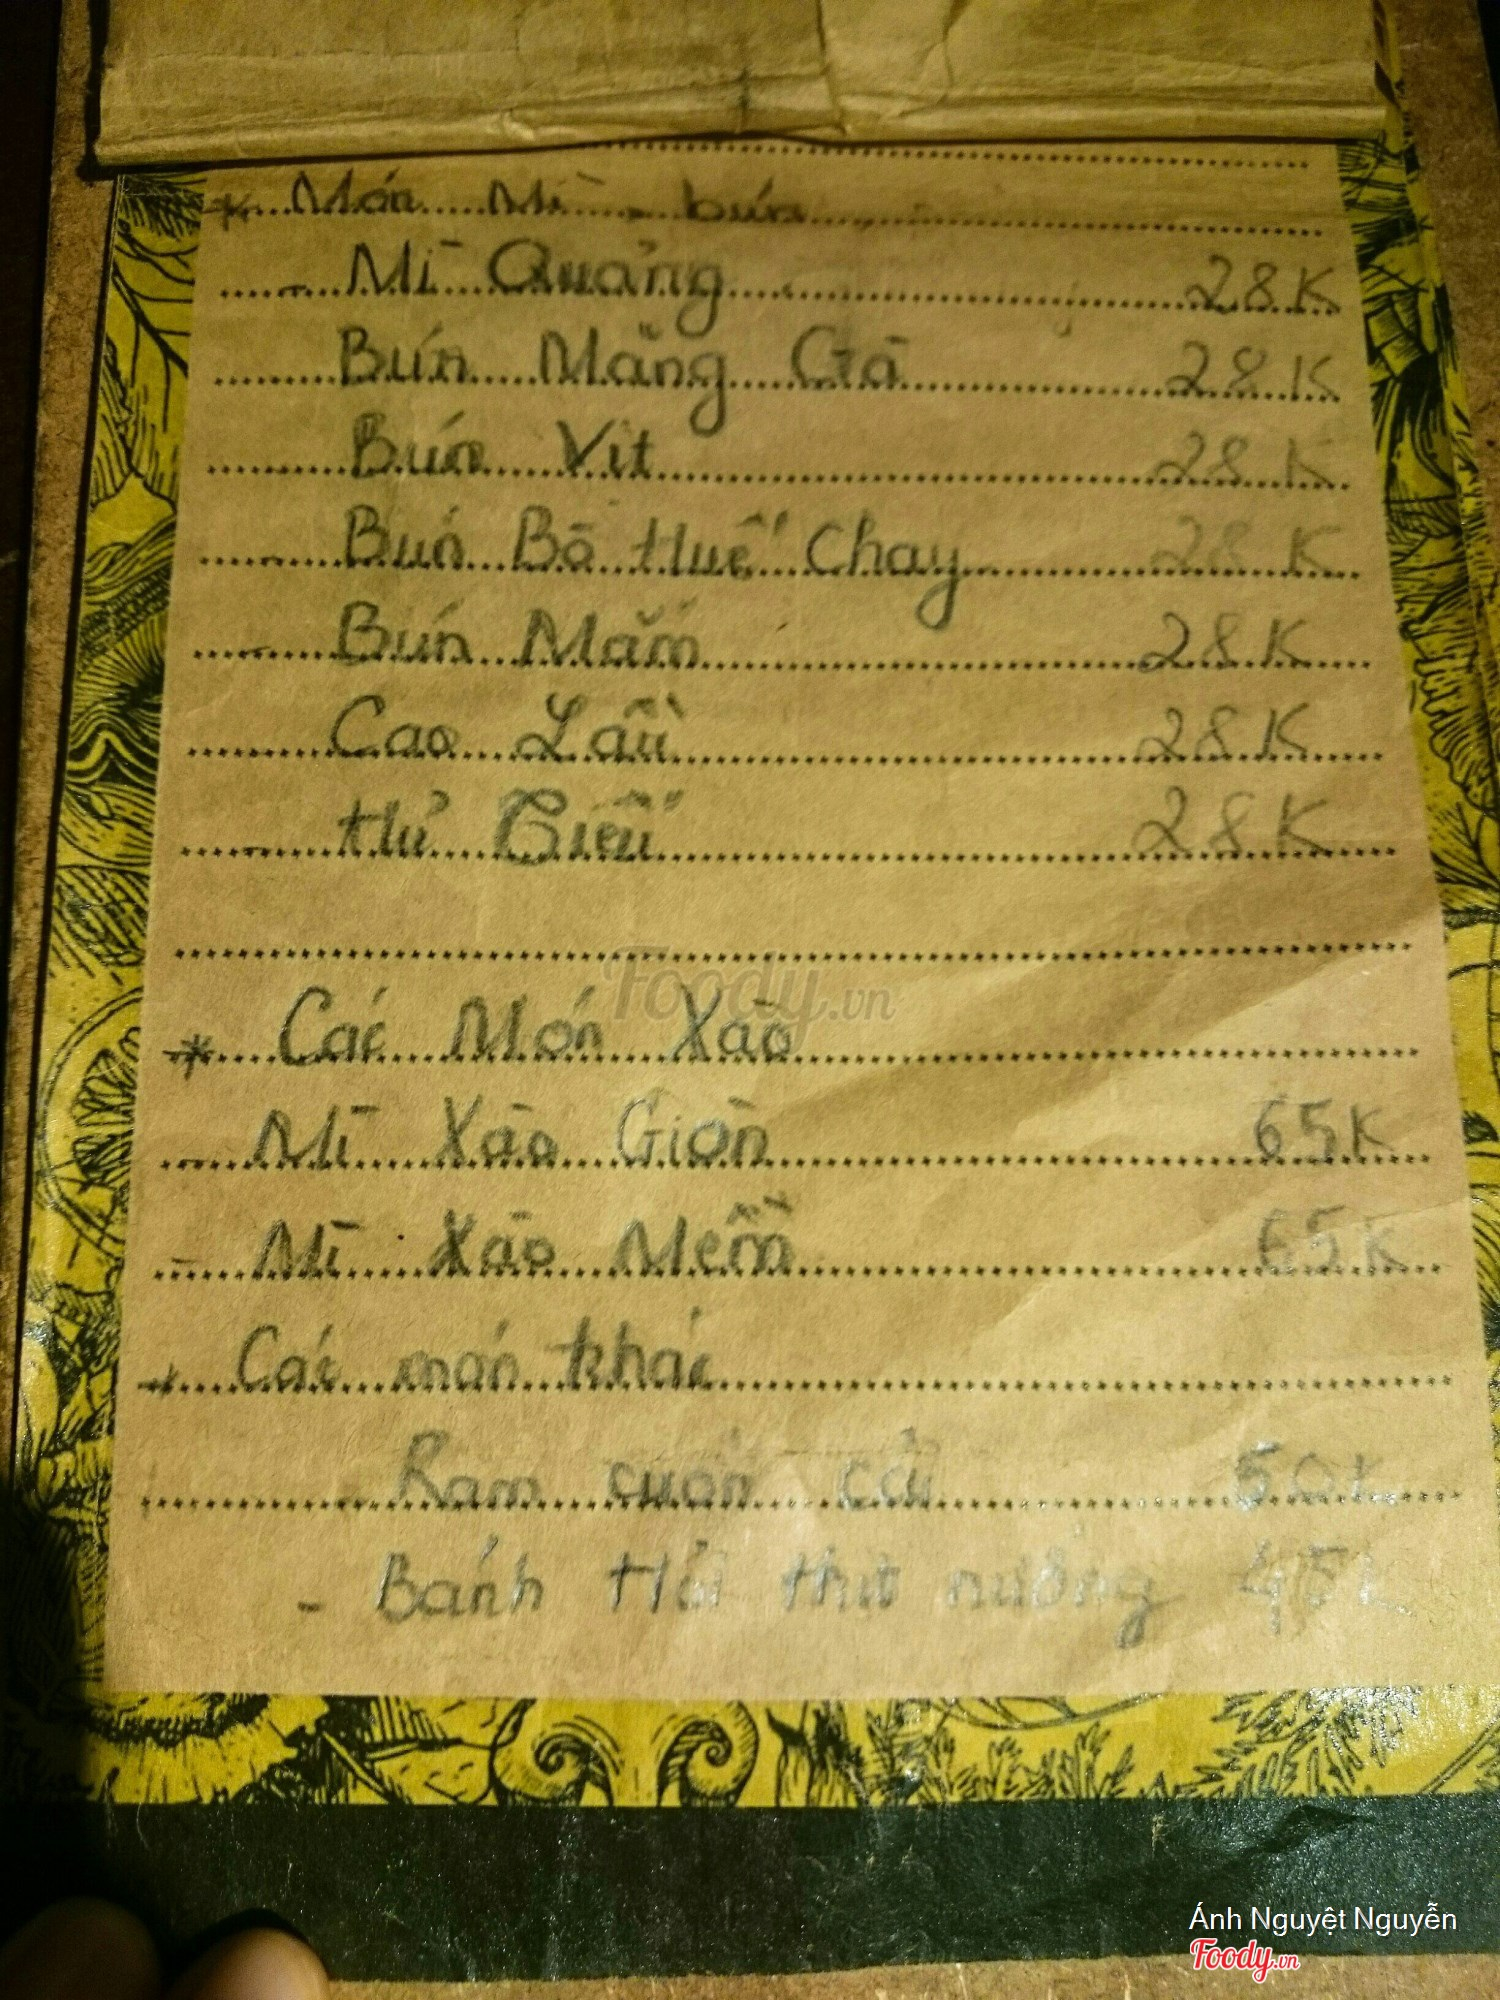 * Món Mì, bún
- Mì Quảng 28K
Bún Măng Gà 28K
Bún Vịt 28K
- Bún Bò Huế Chay 28K
- Bún Mắm 28K
- Cao Lầu 28K
- Hủ Tiếu 28K
Foody.vn
* Các Món Xào
- Mì Xào Giòn 65K
- Mì Xào Mềm 65K
* Các món khác
Ram cuốn cải 50K
- Bánh Hỏi thịt nướng 45K
Ánh Nguyệt Nguyễn
Foody.vn